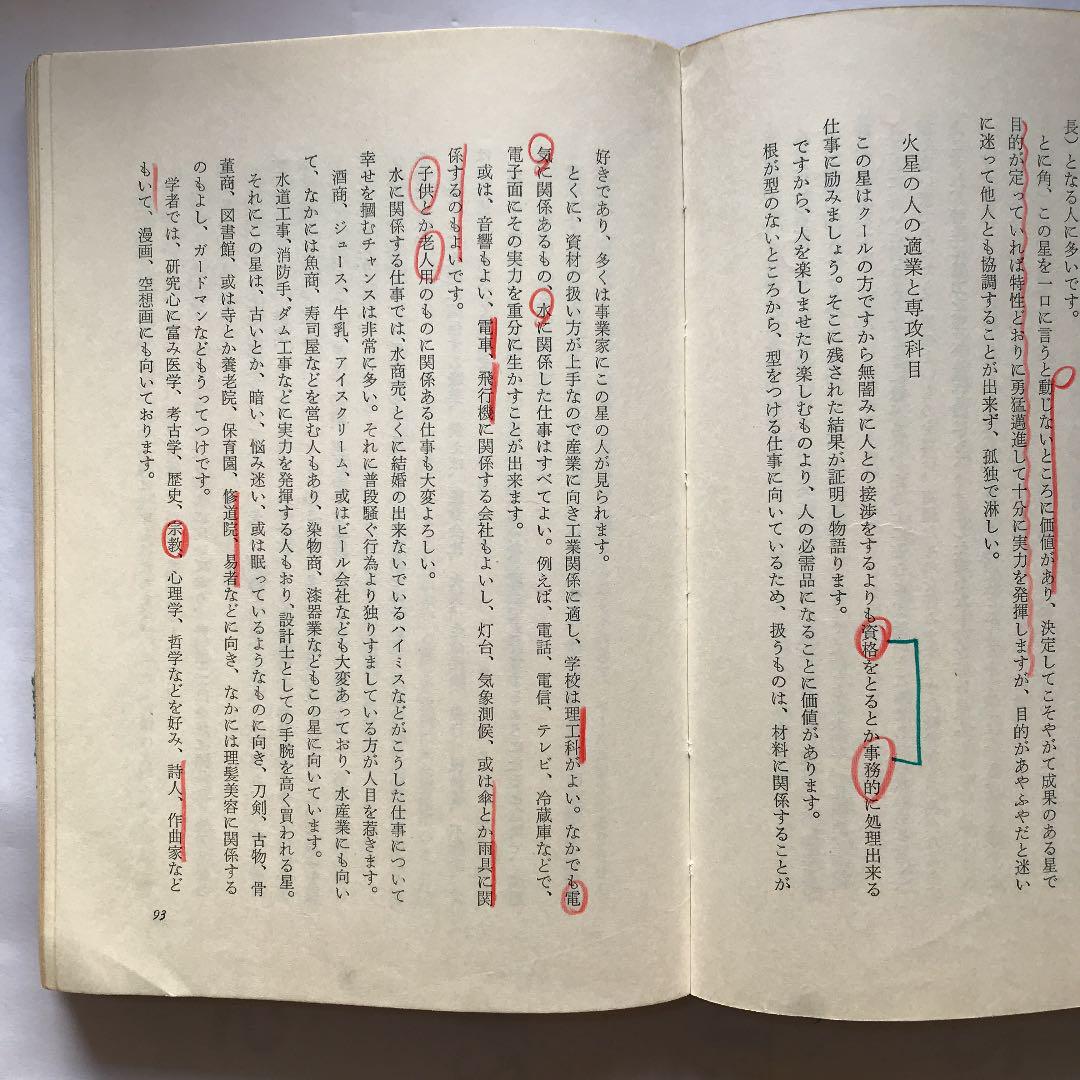 長）となる人に多いです。
とに角、この星を一口に言うと動じないところに価値があり、決定してこそやがて成果のある星で
目的が定っていれば特性どおりに勇猛邁進して十分に実力を発揮しますが、目的があやふやだと迷い
に迷って他人とも協調することが出来ず、孤独で淋しい。
火星の人の適業と専攻科目
この星はクールの方ですから無闇みに人との接渉をするよりも資格をとるとか事務的に処理出来る
仕事に励みましょう。そこに残された結果が証明し物語ります。
ですから、人を楽しませたり楽しむものより、人の必需品になることに価値があります。
根が型のないところから、型をつける仕事に向いているため、扱うものは、材料に関係することが
好きであり、多くは事業家にこの星の人が見られます。
とくに、資材の扱い方が上手なので産業に向き工業関係に適し、学校は理工科がよい。なかでも電
気に関係あるもの、水に関係した仕事はすべてよい。例えば、電話、電信、テレビ、冷蔵庫などで、
電子面にその実力を重分に生かすことが出来ます。
或は、音響もよい、電車、飛行機に関係する会社もよいし、灯台、気象測候、或は傘とか雨具に関
係するのもよいです。
子供とか老人用のものに関係ある仕事も大変よろしい。
水に関係する仕事では、水商売、とくに結婚の出来ないでいるハイミスなどがこうした仕事について
幸せを摑むチャンスは非常に多い。それに普段騒ぐ行為より独りすましている方が人目を惹きます。
酒商、ジュース、牛乳、アイスクリーム、或はビール会社なども大変あっており、水産業にも向い
て、なかには魚商、寿司屋などを営む人もあり、染物商、漆器業などもこの星に向いています。
水道工事、消防手、ダム工事などに実力を発揮する人もおり、設計士としての手腕を高く買われる星。
それにこの星は、古いとか、暗い、悩み迷い、或は眠っているようなものに向き、刀剣、古物、骨
董商、図書館、或は寺とか養老院、保育園、修道院、易者などに向き、なかには理髪美容に関係する
のもよし、ガードマンなどもうってつけです。
学者では、研究心に富み医学、考古学、歴史、宗教、心理学、哲学などを好み、詩人、作曲家など
もいて、漫画、空想画にも向いております。
93